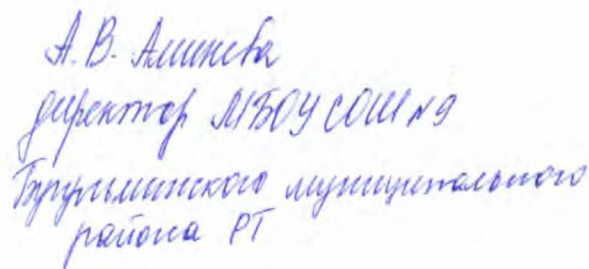 А.В. Аминева
директор МБОУ СОШ №9
Бугульминского муниципального
района РТ